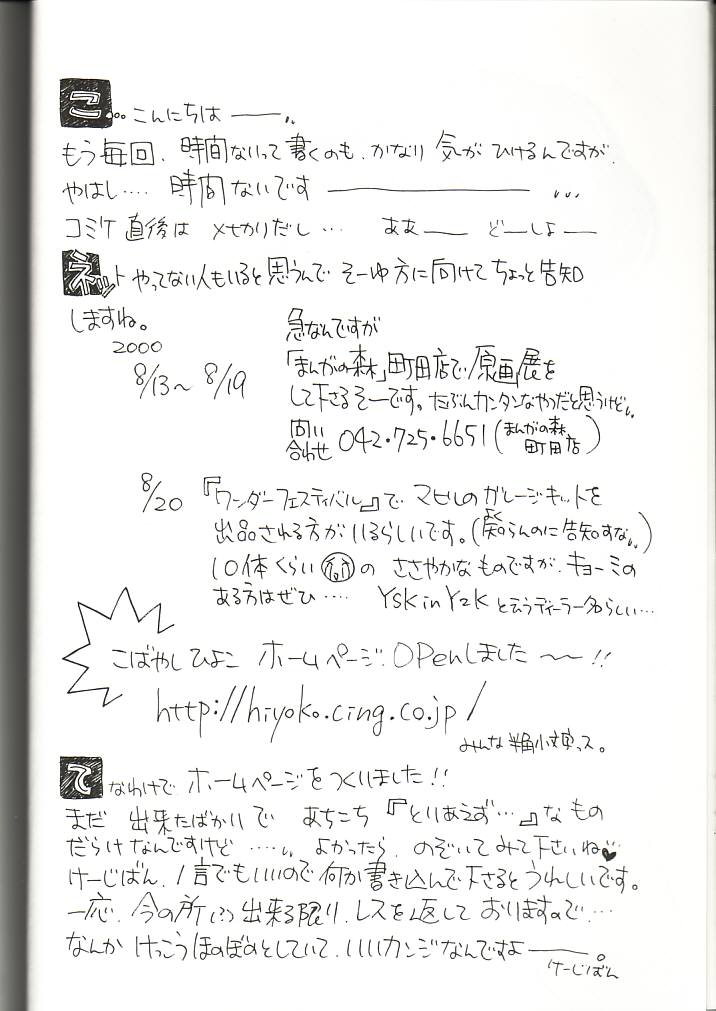 こ…こんにちは ――‥
もう毎回、時間ないって書くのも、かなり気がひけるんですが、
やはし‥‥ 時間ないです ――――――― …
コミケ直後は メせかりだし… ああ―― どーしよ――
ネット やってない人もいると思うんで そーゆ方に向けてちょっと告知
しますね。
2000
8/13~8/19
急なんですが
「まんがの森」町田店で「原画」展を
して下さるそーです。たぶんカンタンなやつだと思うけど‥
問い合わせ 042・725・6651(まんがの森 町田店)
8/20 『ワンダーフェスティバル』で マヒルのガレージキットを
出品される方がいるらしいです。(よく知らんのに告知すな‥)
10体くらい の ささやかなものですが、キョーミの
ある方はぜひ‥‥ YSK in Y2K と云うディーラー名らしい…
こばやしひよこ ホームページ OPenしました ~~!!
http://hiyoko.cing.co.jp/
みんな半角小文字っス。
てなわけで ホームページをつくりました!!
まだ 出来たばかりで あちこち『とりあえず…』なもの
だらけなんですけど ‥‥‥ よかったら、のぞいてみて下さいね♥
けーじばん、1言でもいいので何か書き込んで下さるとうれしいです。
一応、今の所は 出来る限り、レスを返しておりますので、…
なんか けっこうほのぼのとしていて、いいカンジなんですよ――。
けーじばん